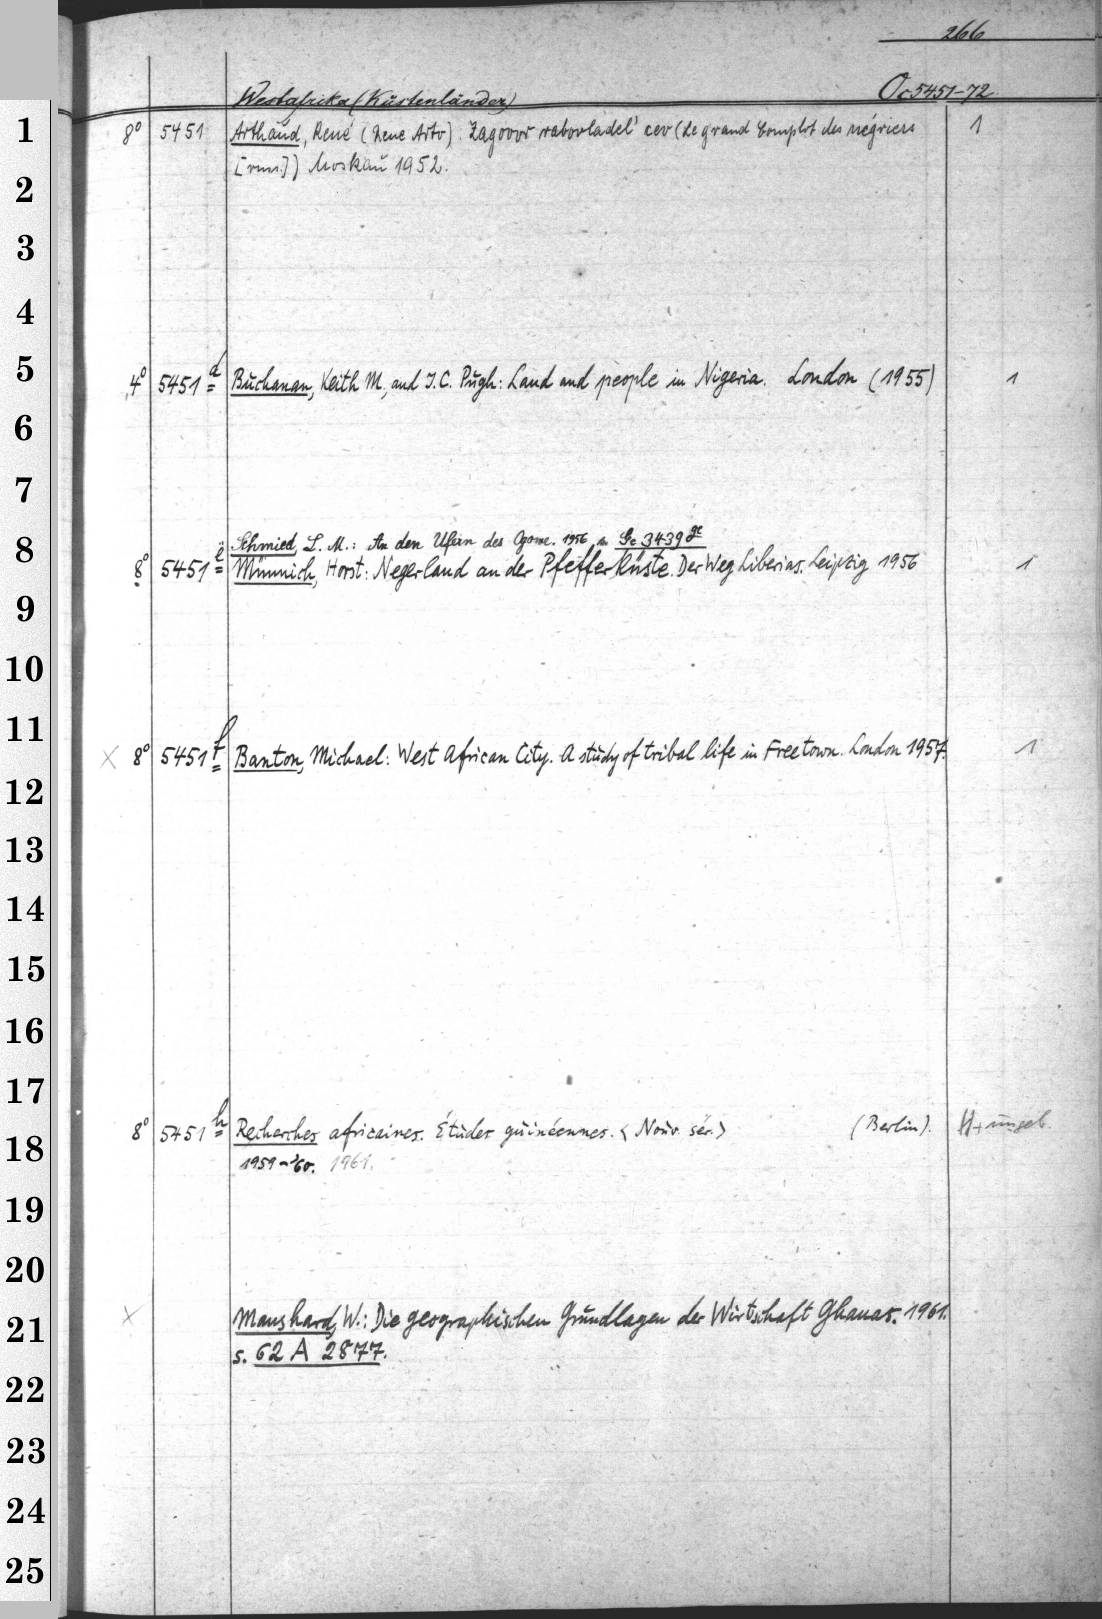 266
Westafrika (Küstenländer) Oc 5451-72
1 8° 5451 Arthaud, René (Rene Arto). Zagovor rabovladel'cev (Le grand Complot des négriers 1
[russ.]) Moskau 1952.
2
3
4
5 4° 5451 d Buchanan, Keith M., and J.C. Pugh: Land and people in Nigeria. London (1955) 1
6
7
8 Schmied, L. M.: An den Ufern des Ogowe. 1956 in Gc 3439 gc
8° 5451 e Münnich, Horst: Negerland an der Pfefferküste. Der Weg Liberias. Leipzig 1956 1
9
10
11 × 8° 5451 f Banton, Michael: West African City. A study of tribal life in Freetown. London 1957. 1
12
13
14
15
16
17
18 8° 5451 h Recherches africaines. Études guinéennes. < Nouv. sér. > (Berlin). H + ungeb.
1959-'60. 1961.
19
20
21 × Manshard, W.: Die geographischen Grundlagen der Wirtschaft Ghanas. 1961.
s. 62 A 2877.
22
23
24
25